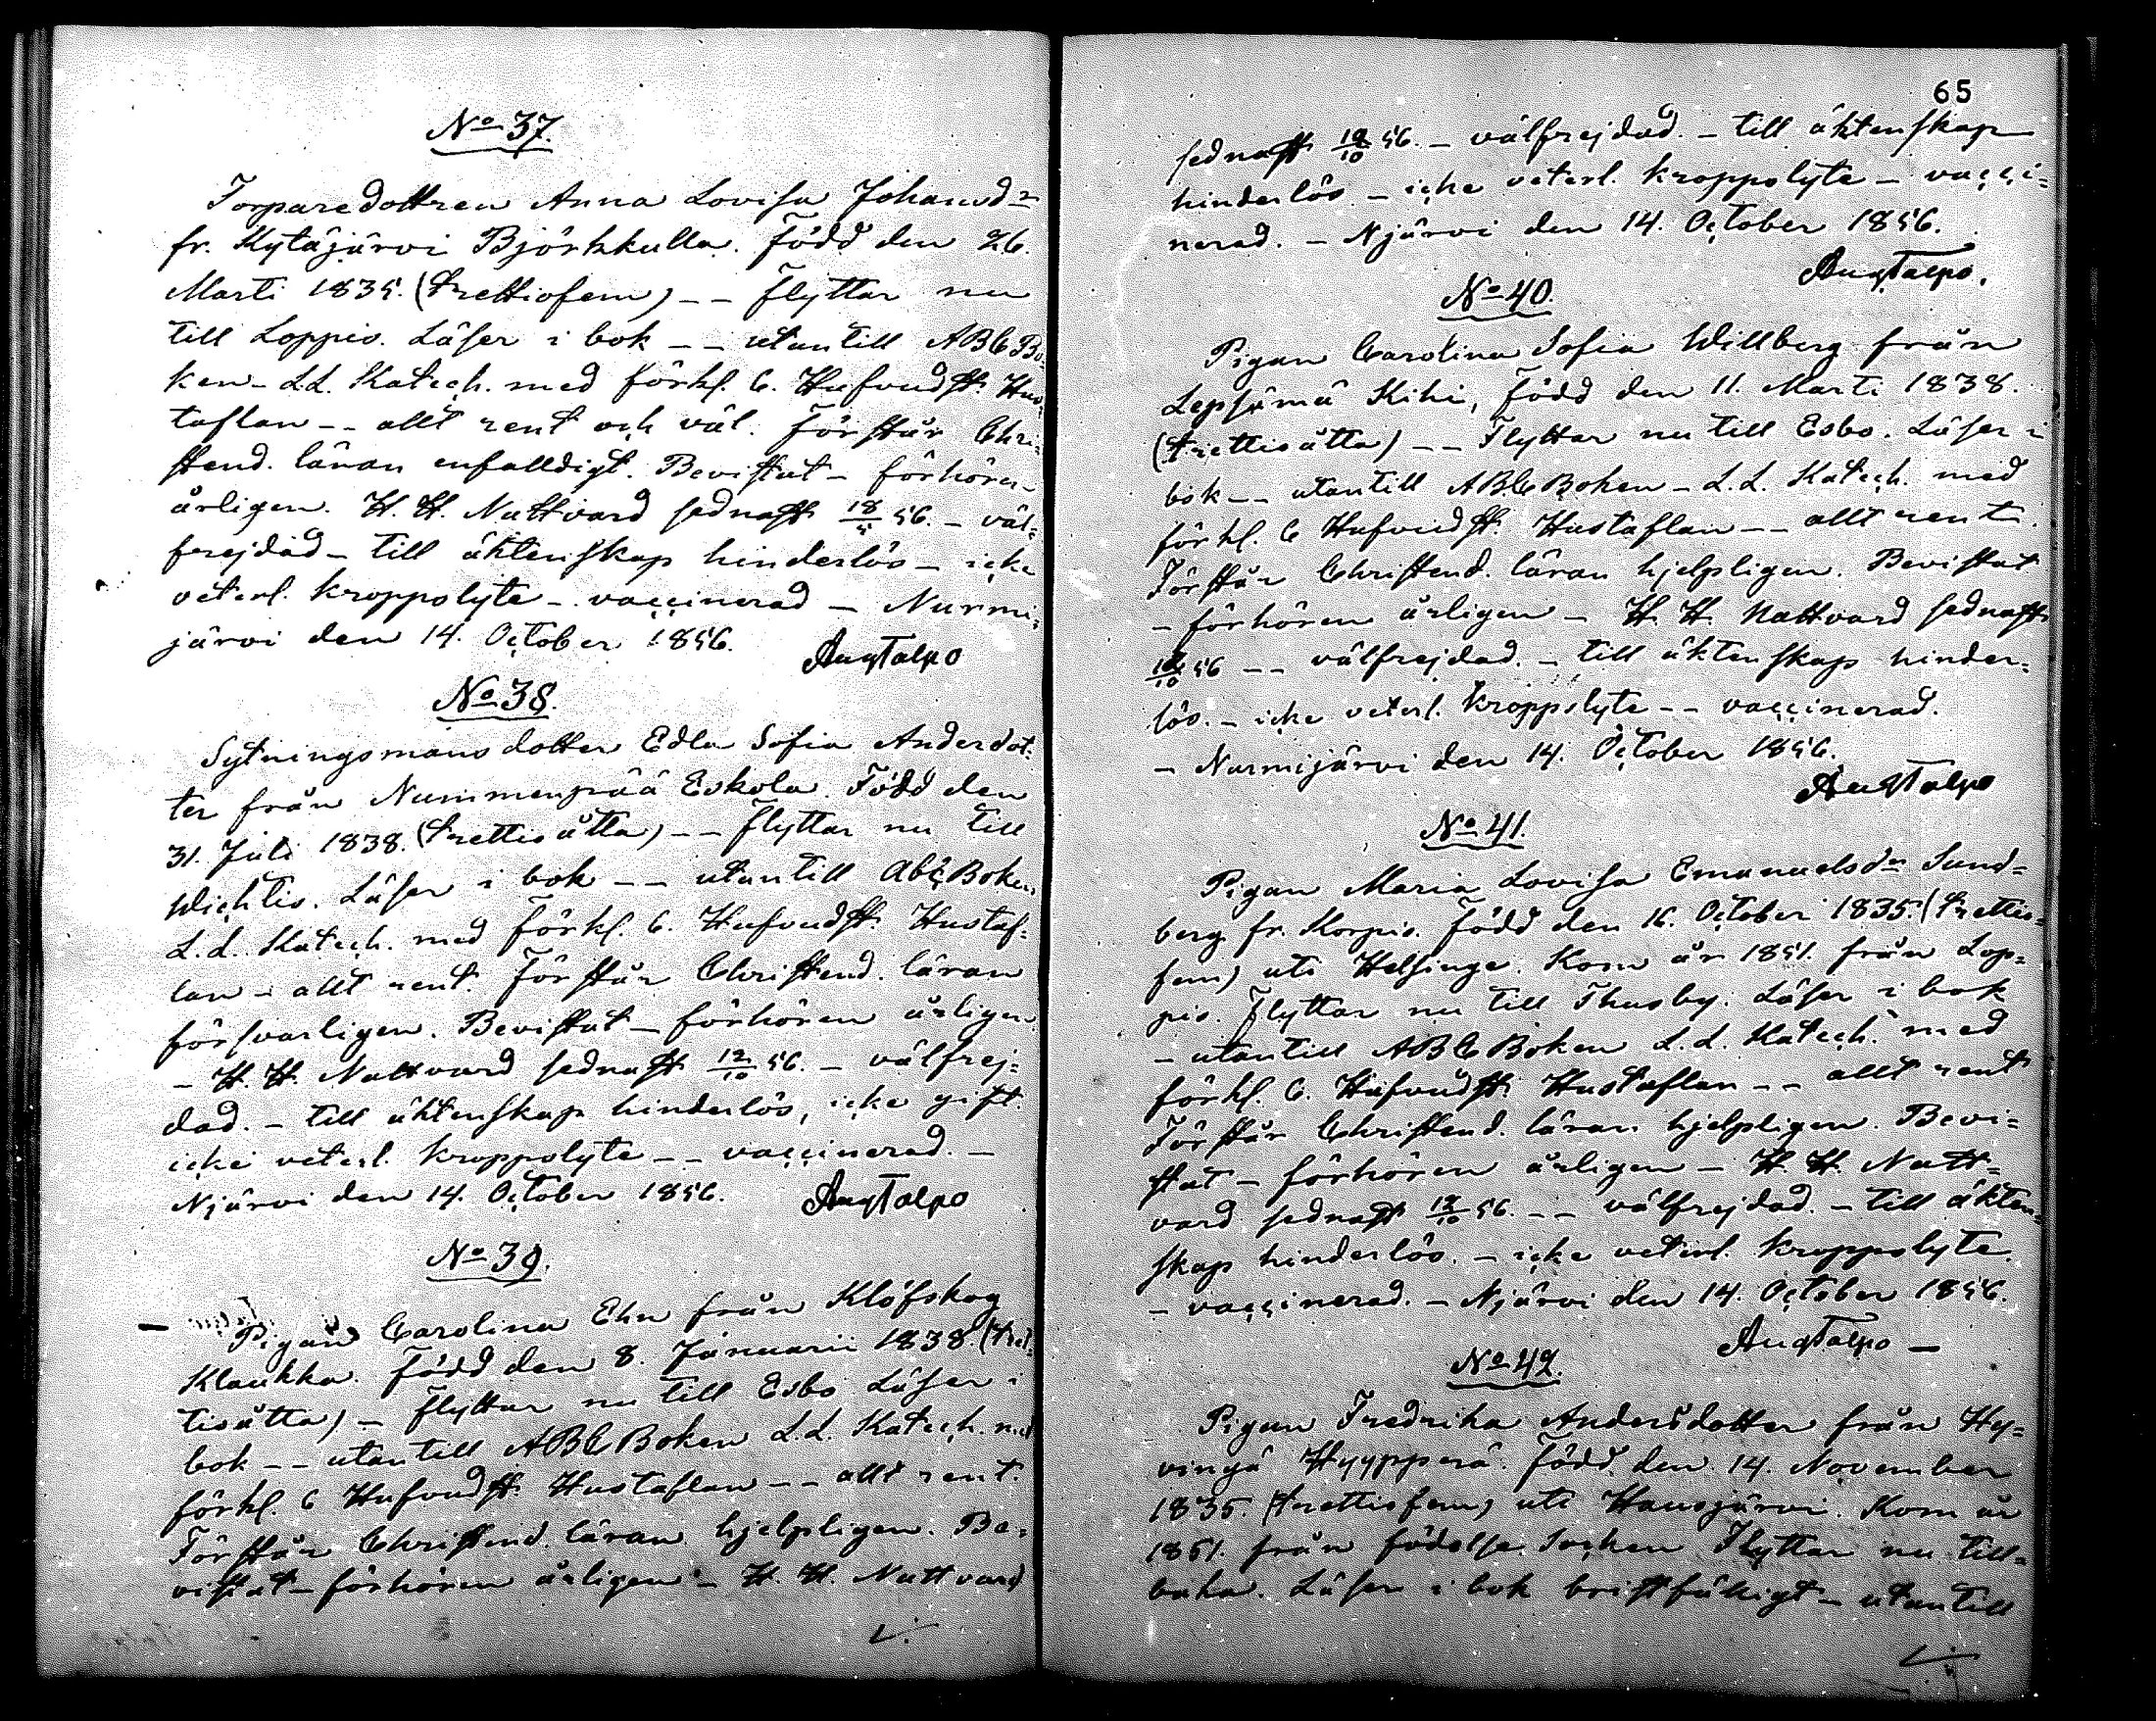 No 37.
Torparedottren Anna Lovisa Johansdr
fr. Kytäjärvi Björkkulla. Född den 26.
Marti 1835. (trettiofem) -- Flyttar nu
till Loppis. Läser i bok -- utantill ABC Bo-
ken - L.L. Katech. med förkl. C. Hufvudst. Hus-
taflan -- allt rent och väl. Förstår Chri-
stend. läran enfalldigt. Bevistat - förhören
årligen. H. H. Nattvard sednast 56. - väl-
frejdad - till äktenskap hinderlös - icke
veterl. kroppslyte - vaccinerad - Nurmi-
järvi den 14. October 1856.
Aug Talpo
No 38.
Sytningsmans dotter Edla Sofia Andersdot-
ter från Nummenpää Eskola. Född den
31. Juli 1838. (trettioåtta) -- Flyttar nu till
Wichtis. Läser i bok -- utantill Abc Boken
L. L. Katech. med förkl. C. Hufvudst. Hustaf-
lan - allt rent. Förstår Christend. läran
försvarligen. Bevistat - förhören årligen.
- H. H. Nattvard sednast 12/10 56. - välfrej-
dad. - till äktenskap hinderlös, icke gift.
icke veterl. kroppslyte -- vaccinerad. -
Njärvi den 14. October 1856.
Aug Talpo
No 39.
Pigan Carolina Ehn från Klöfskog
Klaukka. Född den 8. Januarii 1838. (tret-
tioåtta) - Flyttar nu till Esbo Läser i
bok -- utantill ABC Boken L.L. Katech. med
förkl. C Hufvudst. Hustaflan -- allt rent.
Förstår Christend. läran hjelpligen. Be-
vistat - förhören årligen - H. H. Nattvard
65
sednast 12/10 56. - välfrejdad. - till äktenskap
hinderlös. - icke veterl. kroppslyte - vacci-
nerad. - Njärvi den 14. October 1856.
Aug Talpo.
No 40.
Pigan Carolina Sofia Willberg från
Lepsämä Kihi, född den 11. Marti 1838.
(trettioåtta) -- Flyttar nu till Esbo. Läser i
bok -- utantill ABC Boken - L. L. Katech. med
förkl. C Hufvudst. Hustaflan -- allt rent.
Förstår Christend. läran hjelpligen. Bevistat
- förhören årligen - H. H. Nattvard sednast
12/10 56 -- välfrejdad. - till äktenskap hinder-
lös. - icke veterl. kroppslyte -- vaccinerad.
- Nurmijärvi den 14. October 1856.
Aug Talpo
No 41.
Pigan Maria Lovisa Emanuelsdr Sund-
berg fr. Korpis. Född den 16. October 1835. (trettio-
fem) uti Helsinge. Kom år 1851. från Lop-
pis. Flyttar nu till Thusby. Läser i bok
- utantill ABC Boken L. L. Katech. med
förkl. C. Hufvudst. Hustaflan -- allt rent
Förstår Christend. läran hjelpligen. Bevi-
stat - förhören årligen - H. H. Natt-
vard sednast 12/10 56. -- välfrejdad. - till äkten-
skap hinderlös. - icke veterl. kroppslyte.
- vaccinerad. - Njärvi den 14. October 1856.
Aug Talpo -
No 42.
Pigan Fredrika Andersdotter från Hy-
vingä Hyypperä. Född den 14. November
1835. (trettiofem) uti Hausjärvi. Kom år
1851. från födelse Socken Flyttar nu till-
baka. Läser i bok bristfälligt - utantill